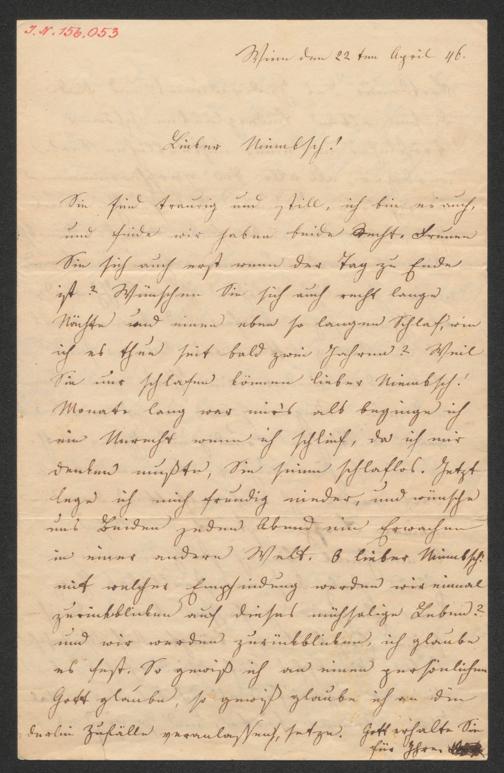 I.N. 156.053
Wien den 22ten April 46.
Lieber Niembsch!
Sie sind traurig und still, ich bin es auch,
und finde wir haben beide Recht. Freuen
Sie sich auch erst wenn der Tag zu Ende
ist? Wünschen Sie sich auch recht lange
Nächte und einen eben so langen Schlaf, wie
ich es thue seit bald zwei Jahren? Weil
Sie nur schlafen können lieber Niembsch!
Monate lang war mirs als beginge ich
ein Unrecht wenn ich schlief, da ich mir
denken mußte, Sie seien schlaflos. Jetzt
lege ich mich freudig nieder, und wünsche
uns Beiden jeden Abend ein Erwachen
in einer andern Welt. O lieber Niembsch!
mit welcher Empfindung werden wir einmal
zurückblicken auf dieses mühselige Leben?
und wir werden zurückblicken, ich glaube
es fest. So gewiß ich an einen persönlichen
Gott glaube, so gewiß glaube ich an den
Zufälle veranlassen, setze. Gott erhalte Sie
für Ihre